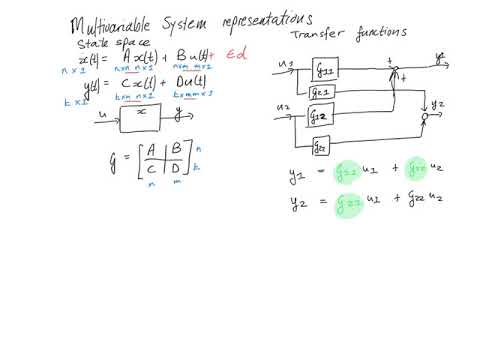 Multivariable System representations
State space
ẋ(t) = A x(t) + B u(t) + Ed
n x 1 n x n n x 1 n x m m x 1
y(t) = C x(t) + D u(t)
t x 1 t x n n x 1 t x m m x 1
u x y
G = [ A B C D ] n t
n m
Transfer functions
u1 g11 + y1
g21 +
u2 g12 y2
g22
y1 = g11 u1 + g12 u2
y2 = g21 u1 + g22 u2